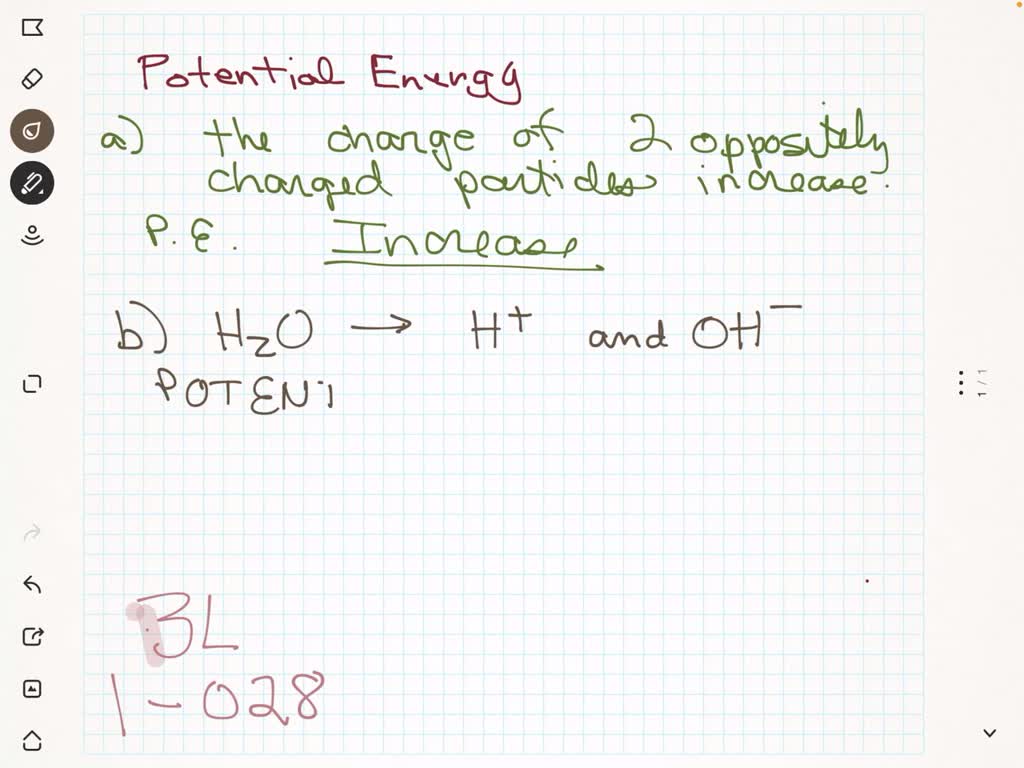 Potential Energy
a) the charge of 2 oppositely
charged particles increase.
P.E. Increase
b) H₂O → H⁺ and OH⁻
POTENi
BL
1-028
1/1